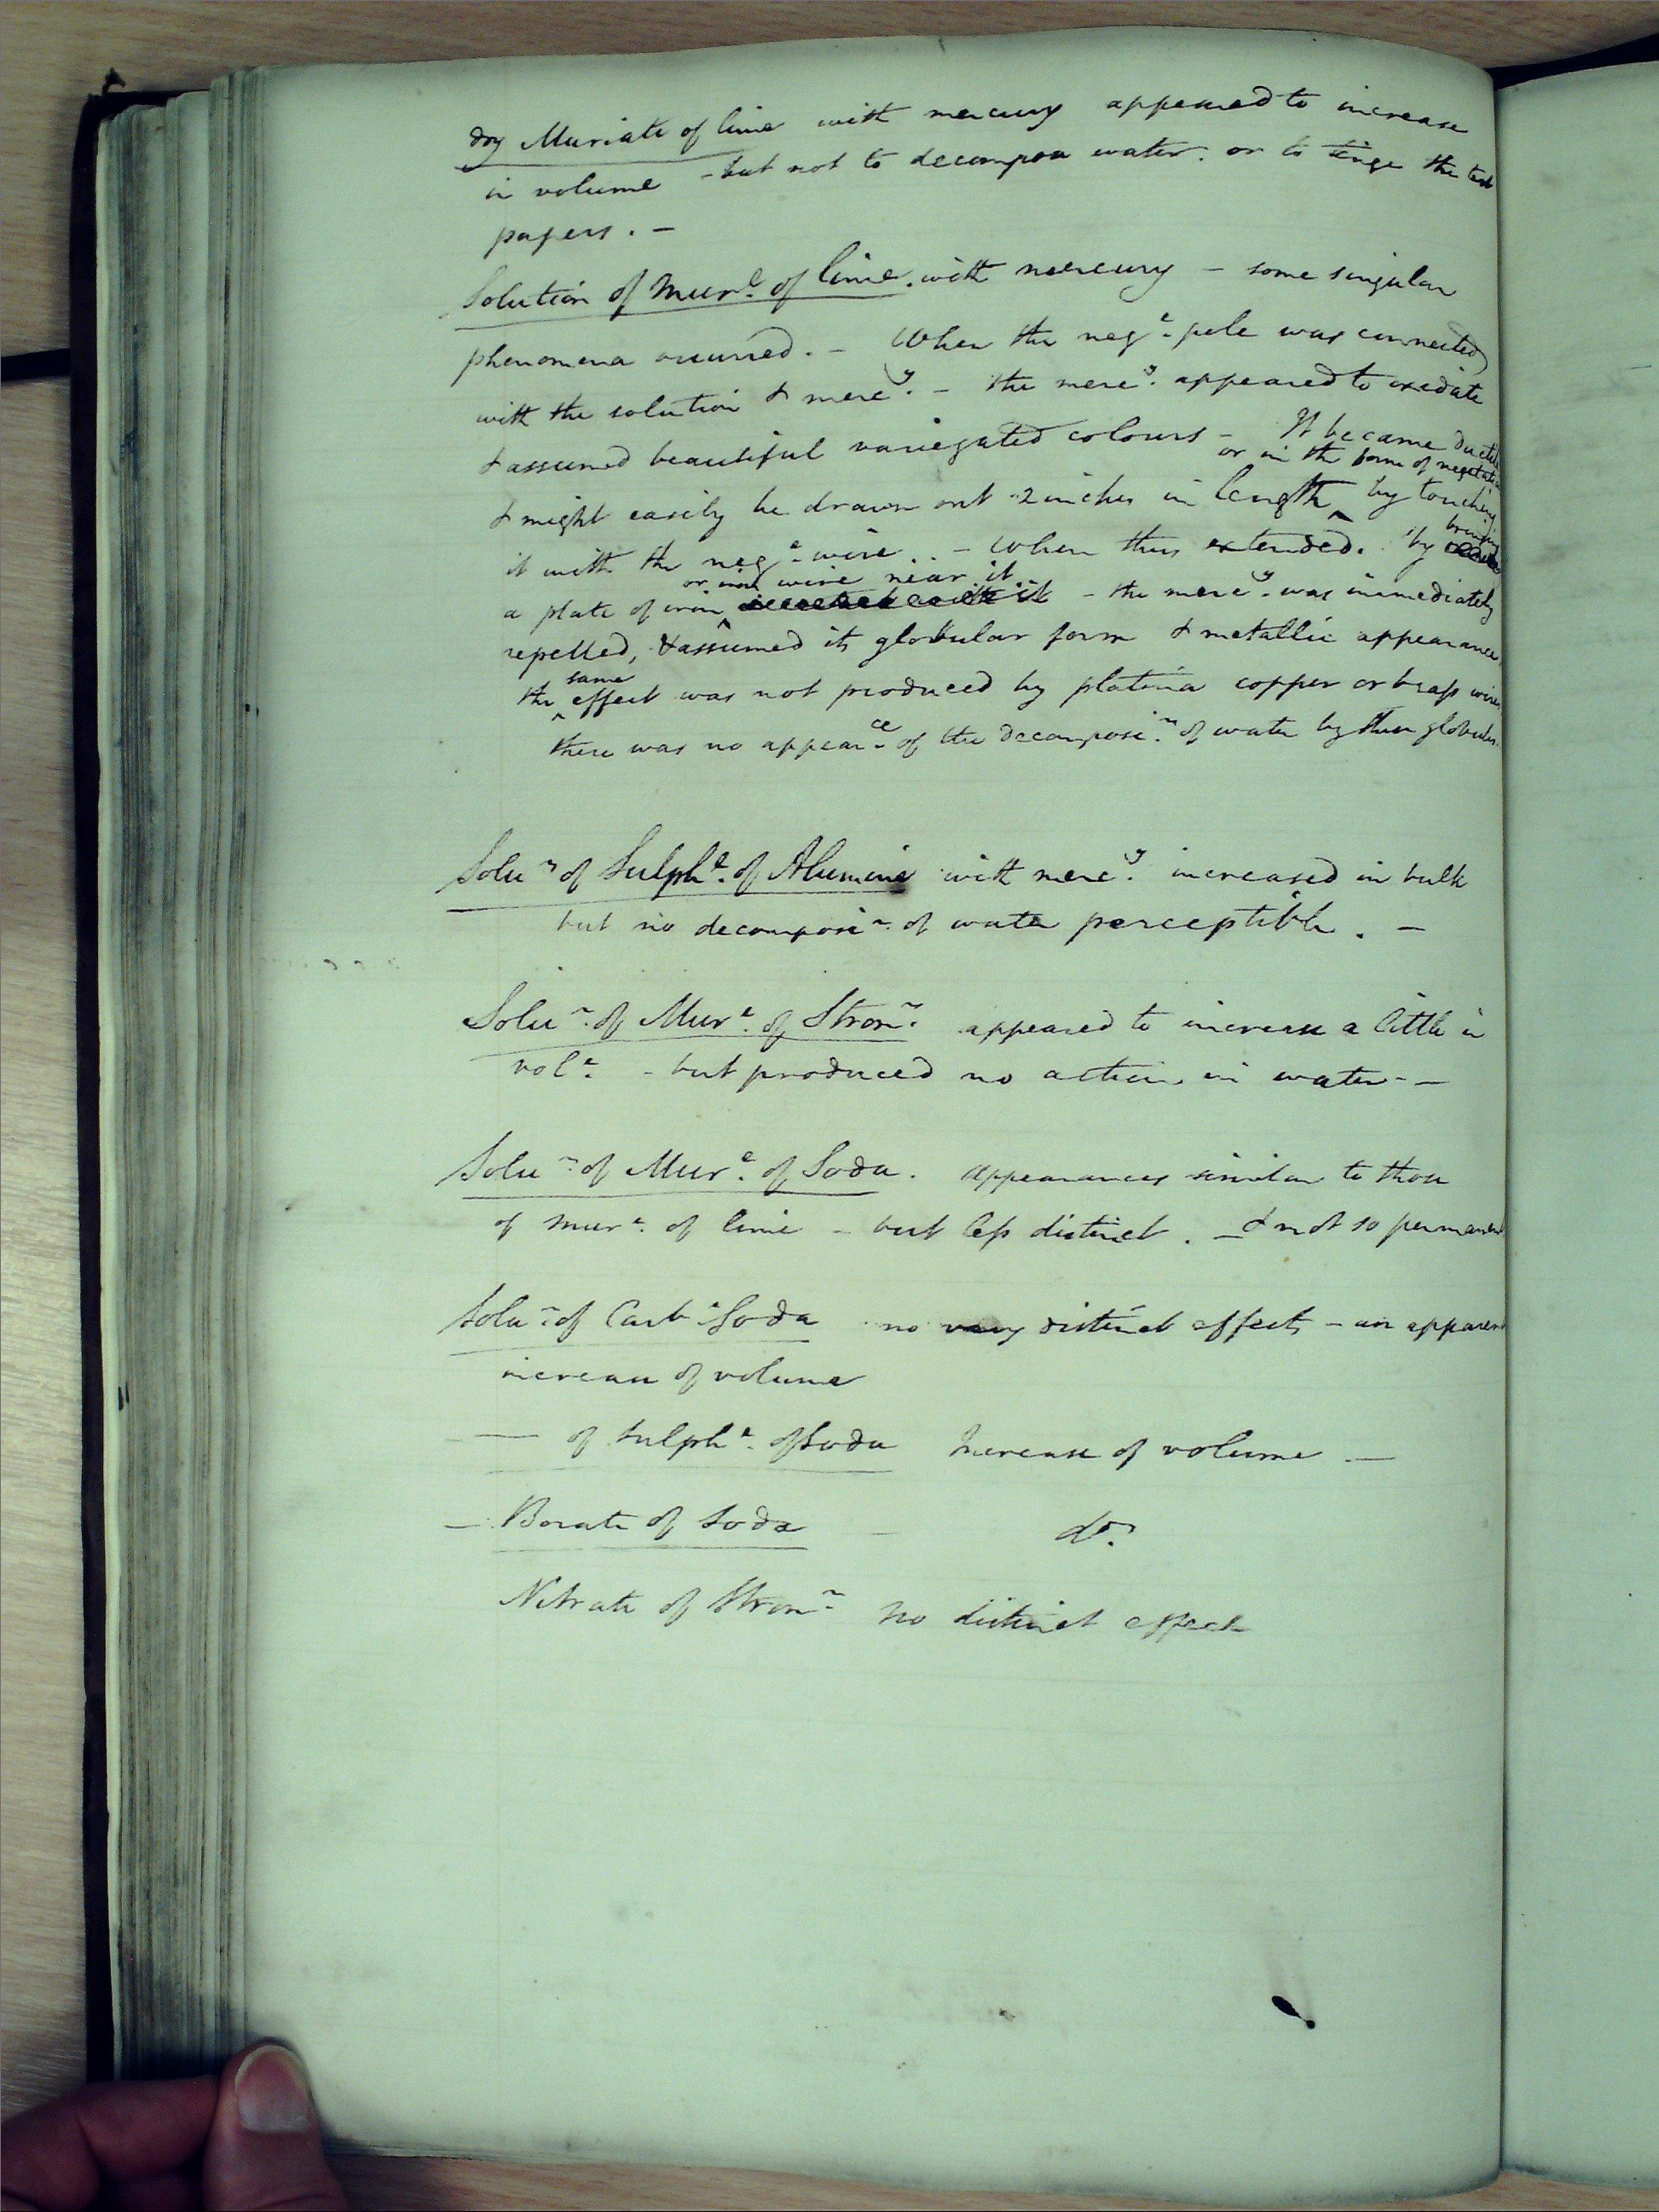 dry Muriate of lime with mercury appeared to increase
in volume - but not to decompose water. or to tinge the test
papers. -
Solution of Mure. of lime. with mercury - some singular
phenomena occurred. - When the nege. pole was connected
with the solution & mercy. - the mercy. appeared to oxidate
& assumed beautiful variegated colours - It became ductile
or in the form of vegetation
& might easily be drawn out 2 inches in length ^ by touching
it with the nege. wire. - When thus extended. by bringing
or iron wire near it
a plate of iron ^ - the mercy. was immediately
repelled, & assumed its globular form & metallic appearance,
the ^ same effect was not produced by platina copper or brass wires
there was no appearce. of the decomposin. of water by these globules.
Solun. of Sulphe. of Alumine with mercy. increased in bulk
but no decomposin. of water perceptible. -
Solun. of Mure. of Stronn. appeared to increase a little in
vole. - but produced no action in water. -
Solun. of Mure. of Soda. appearances similar to those
of mure. of lime - but less distinct. - & not so permanent
Solun. of Carbe Soda no very distinct effect, - an apparent
increase of volume
— of Sulphe. of Soda Increase of volume. -
— Borate of Soda - do.
Nitrate of Stronn. No distinct effect